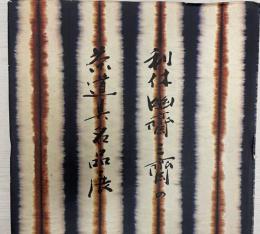 利休幽斎三斎の
茶道具名品展